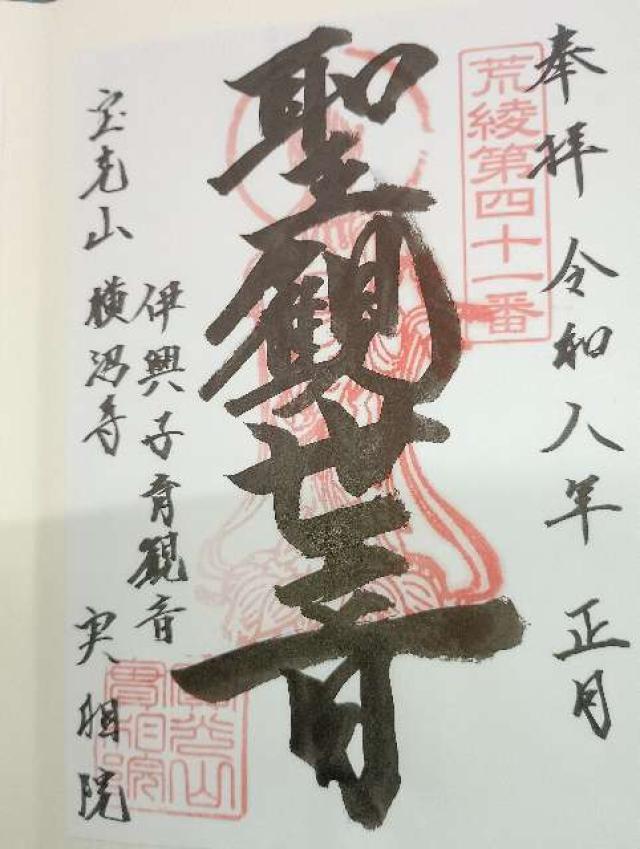 奉拝 令和八年 正月
荒綾第四十一番
聖観世音
伊興子育観音
宝光山 横沼寺 実相院
寶光山
實相院